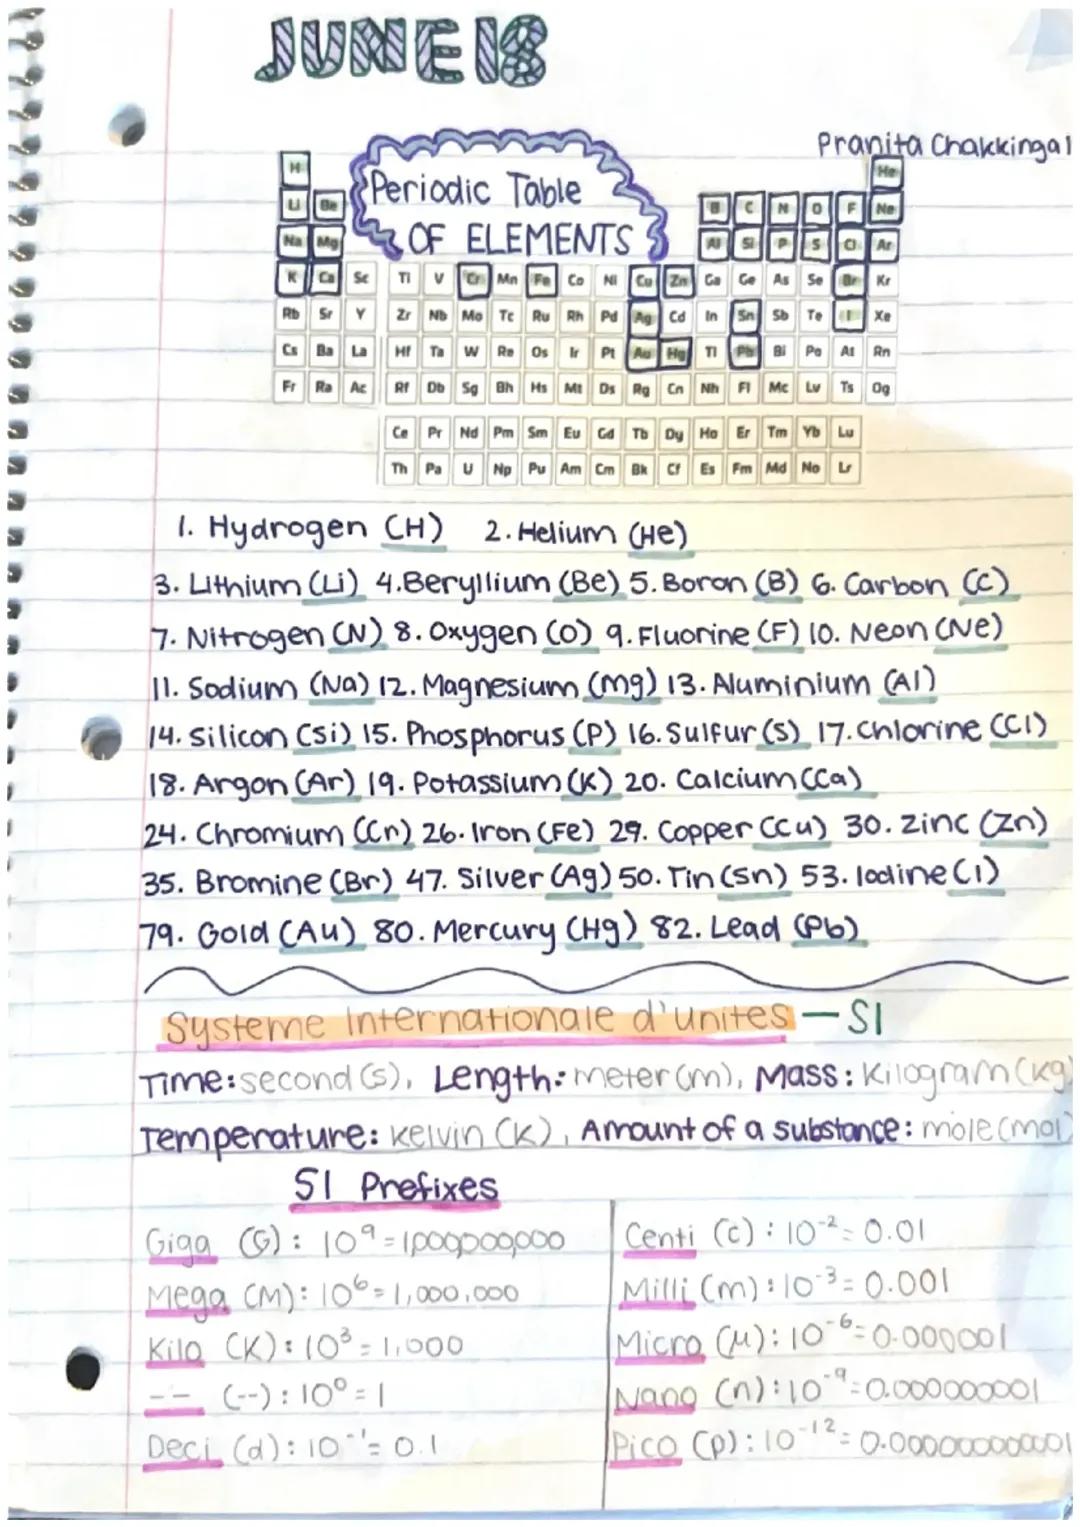 JUNE 18
Pranita Chakkingal
Periodic Table
OF ELEMENTS
H He
Li Be B C N O F Ne
Na Mg Al Si P S Cl Ar
K Ca Sc Ti V Cr Mn Fe Co Ni Cu Zn Ga Ge As Se Br Kr
Rb Sr Y Zr Nb Mo Tc Ru Rh Pd Ag Cd In Sn Sb Te I Xe
Cs Ba La Hf Ta W Re Os Ir Pt Au Hg Tl Pb Bi Po At Rn
Fr Ra Ac Rf Db Sg Bh Hs Mt Ds Rg Cn Nh Fl Mc Lv Ts Og
Ce Pr Nd Pm Sm Eu Gd Tb Dy Ho Er Tm Yb Lu
Th Pa U Np Pu Am Cm Bk Cf Es Fm Md No Lr
1. Hydrogen (H) 2. Helium (He)
3. Lithium (Li) 4. Beryllium (Be) 5. Boron (B) 6. Carbon (C)
7. Nitrogen (N) 8. Oxygen (O) 9. Fluorine (F) 10. Neon (Ne)
11. Sodium (Na) 12. Magnesium (mg) 13. Aluminium (Al)
14. Silicon (Si) 15. Phosphorus (P) 16. Sulfur (S) 17. Chlorine (Cl)
18. Argon (Ar) 19. Potassium (K) 20. Calcium (Ca)
24. Chromium (Cr) 26. Iron (Fe) 29. Copper (Cu) 30. Zinc (Zn)
35. Bromine (Br) 47. Silver (Ag) 50. Tin (Sn) 53. Iodine (I)
79. Gold (Au) 80. Mercury (Hg) 82. Lead (Pb)
Systeme Internationale d'unites — SI
Time: second (s), Length: meter (m), Mass: Kilogram (kg)
Temperature: kelvin (K), Amount of a substance: mole (mol)
SI Prefixes
Giga (G): 10⁹ = 1,000,000,000
Mega (M): 10⁶ = 1,000,000
Kilo (K): 10³ = 1,000
-- (--): 10⁰ = 1
Deci (d): 10⁻¹ = 0.1
Centi (c): 10⁻² = 0.01
Milli (m): 10⁻³ = 0.001
Micro (μ): 10⁻⁶ = 0.000001
Nano (n): 10⁻⁹ = 0.000000001
Pico (p): 10⁻¹² = 0.000000000001